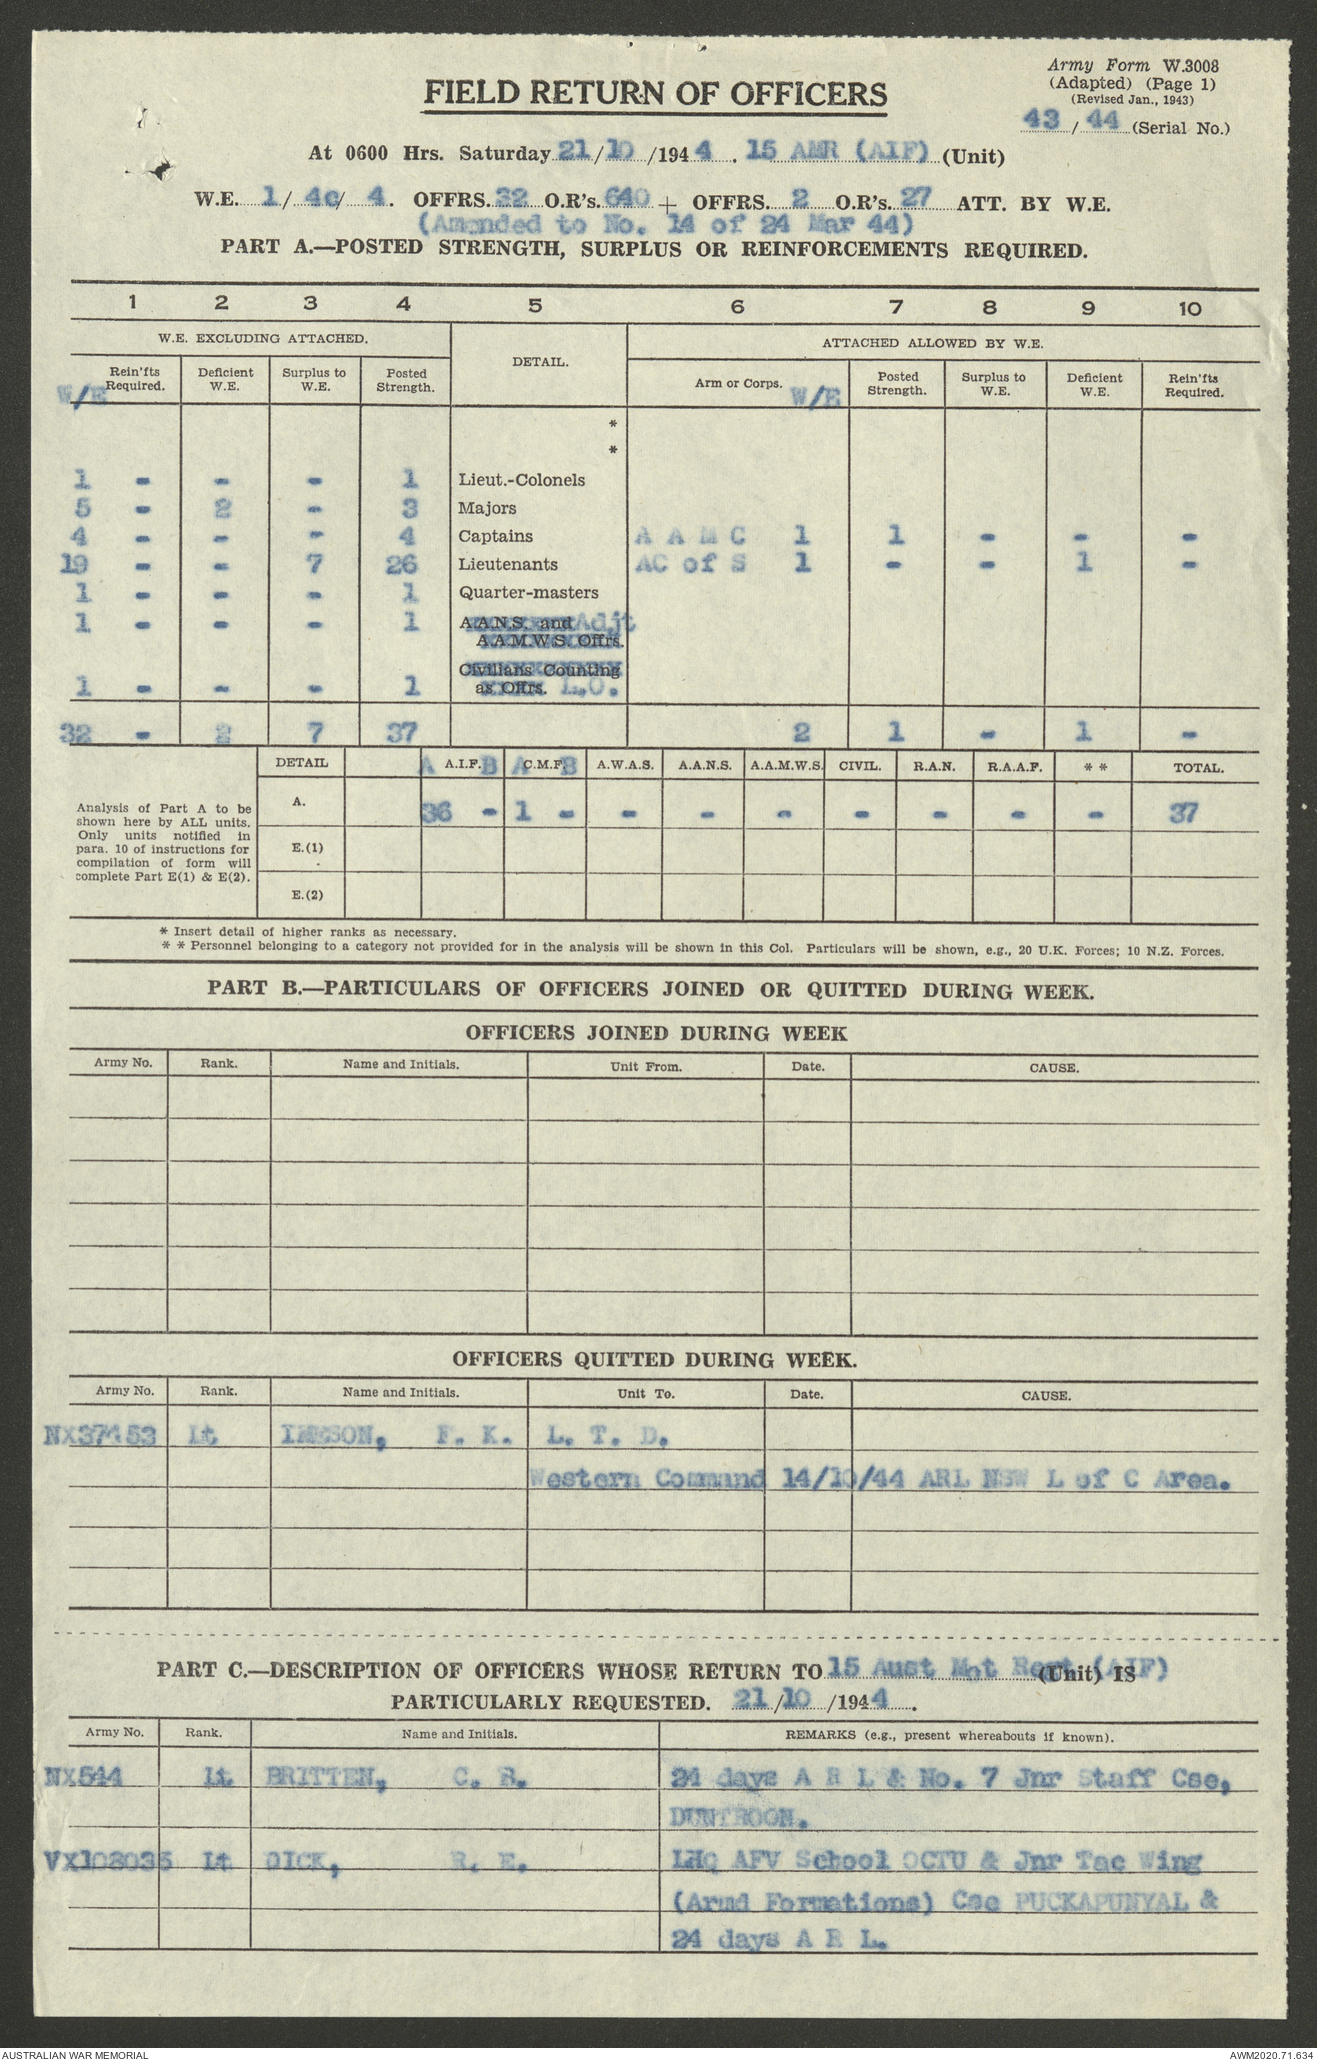 Army Form W.3008
(Adapted) (Page 1)
(Revised Jan., 1943)
43 / 44 (Serial No.)
FIELD RETURN OF OFFICERS
At 0600 Hrs. Saturday 21/10/1944. 15 AMR (AIF) (Unit)
W.E. 1/ 4c/ 4. OFFRS. 32 O.R's. 640 + OFFRS. 2 O.R's. 27 ATT. BY W.E.
(Amended to No. 14 of 24 Mar 44)
PART A.—POSTED STRENGTH, SURPLUS OR REINFORCEMENTS REQUIRED.
1 2 3 4 5 6 7 8 9 10
W.E. EXCLUDING ATTACHED. DETAIL. ATTACHED ALLOWED BY W.E.
W/E Rein'fts Required. Deficient W.E. Surplus to W.E. Posted Strength. Arm or Corps. W/E Posted Strength. Surplus to W.E. Deficient W.E. Rein'fts Required.
*
*
1 - - - 1 Lieut.-Colonels
5 - 2 - 3 Majors
4 - - - 4 Captains A A M C 1 1 - - -
19 - - 7 26 Lieutenants AC of S 1 - - 1 -
1 - - - 1 Quarter-masters
1 - - - 1 A.A.N.S. and Adjt
A.A.M.W.S. Offrs.
Civilians Counting
1 - - - 1 as Offrs. L.O.
32 - 2 7 37 2 1 - 1 -
DETAIL A A.I.F. B A C.M.F. B A.W.A.S. A.A.N.S. A.A.M.W.S. CIVIL. R.A.N. R.A.A.F. * * TOTAL.
A. 36 - 1 - - - - - - - - 37
Analysis of Part A to be
shown here by ALL units.
Only units notified in
para. 10 of instructions for
compilation of form will
complete Part E(1) & E(2).
E.(1)
E.(2)
* Insert detail of higher ranks as necessary.
* * Personnel belonging to a category not provided for in the analysis will be shown in this Col. Particulars will be shown, e.g., 20 U.K. Forces; 10 N.Z. Forces.
PART B.—PARTICULARS OF OFFICERS JOINED OR QUITTED DURING WEEK.
OFFICERS JOINED DURING WEEK
Army No. Rank. Name and Initials. Unit From. Date. CAUSE.
OFFICERS QUITTED DURING WEEK.
Army No. Rank. Name and Initials. Unit To. Date. CAUSE.
Lt IMESON, F. K. L. T. D.
Western Command 14/10/44 ARL NSW L of C Area.
PART C.—DESCRIPTION OF OFFICERS WHOSE RETURN TO 15 Aust Mot Regt (AIF) (Unit) IS
PARTICULARLY REQUESTED. 21/10/1944.
Army No. Rank. Name and Initials. REMARKS (e.g., present whereabouts if known).
NX544 Lt BRITTEN, C. R. 24 days A R L & No. 7 Jnr Staff Cse,
DUNTROON.
VX108035 Lt DICK, R. E. LHQ AFV School OCTU & Jnr Tac Wing
(Armd Formations) Cse PUCKAPUNYAL &
24 days A R L.
AUSTRALIAN WAR MEMORIAL AWM2020.71.634